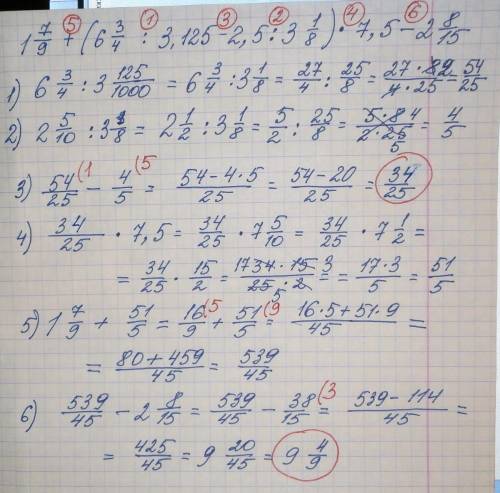 ⑤ ① ③ ② ④ ⑥
1 7/9 + (6 3/4 : 3,125 - 2,5 : 3 1/8) · 7,5 - 2 8/15
1) 6 3/4 : 3 125/1000 = 6 3/4 : 3 1/8 = 27/4 : 25/8 = 27 · 82/4 · 25 = 54/25
2) 2 5/10 : 3 1/8 = 2 1/2 : 3 1/8 = 5/2 : 25/8 = 5 · 8 4/2 · 25 5 = 4/5
3) 54/25 (1 - 4/5 (5 = 54 - 4 · 5/25 = 54 - 20/25 = 34/25
4) 34/25 · 7,5 = 34/25 · 7 5/10 = 34/25 · 7 1/2 =
= 34/25 · 15/2 = 17 34 · 15 3/25 5 · 2 = 17 · 3/5 = 51/5
5) 1 7/9 + 51/5 = 16/9 (5 + 51/5 (9 = 16 · 5 + 51 · 9/45 =
= 80 + 459/45 = 539/45
6) 539/45 - 2 8/15 = 539/45 - 38/15 (3 = 539 - 114/45 =
= 425/45 = 9 20/45 = 9 4/9